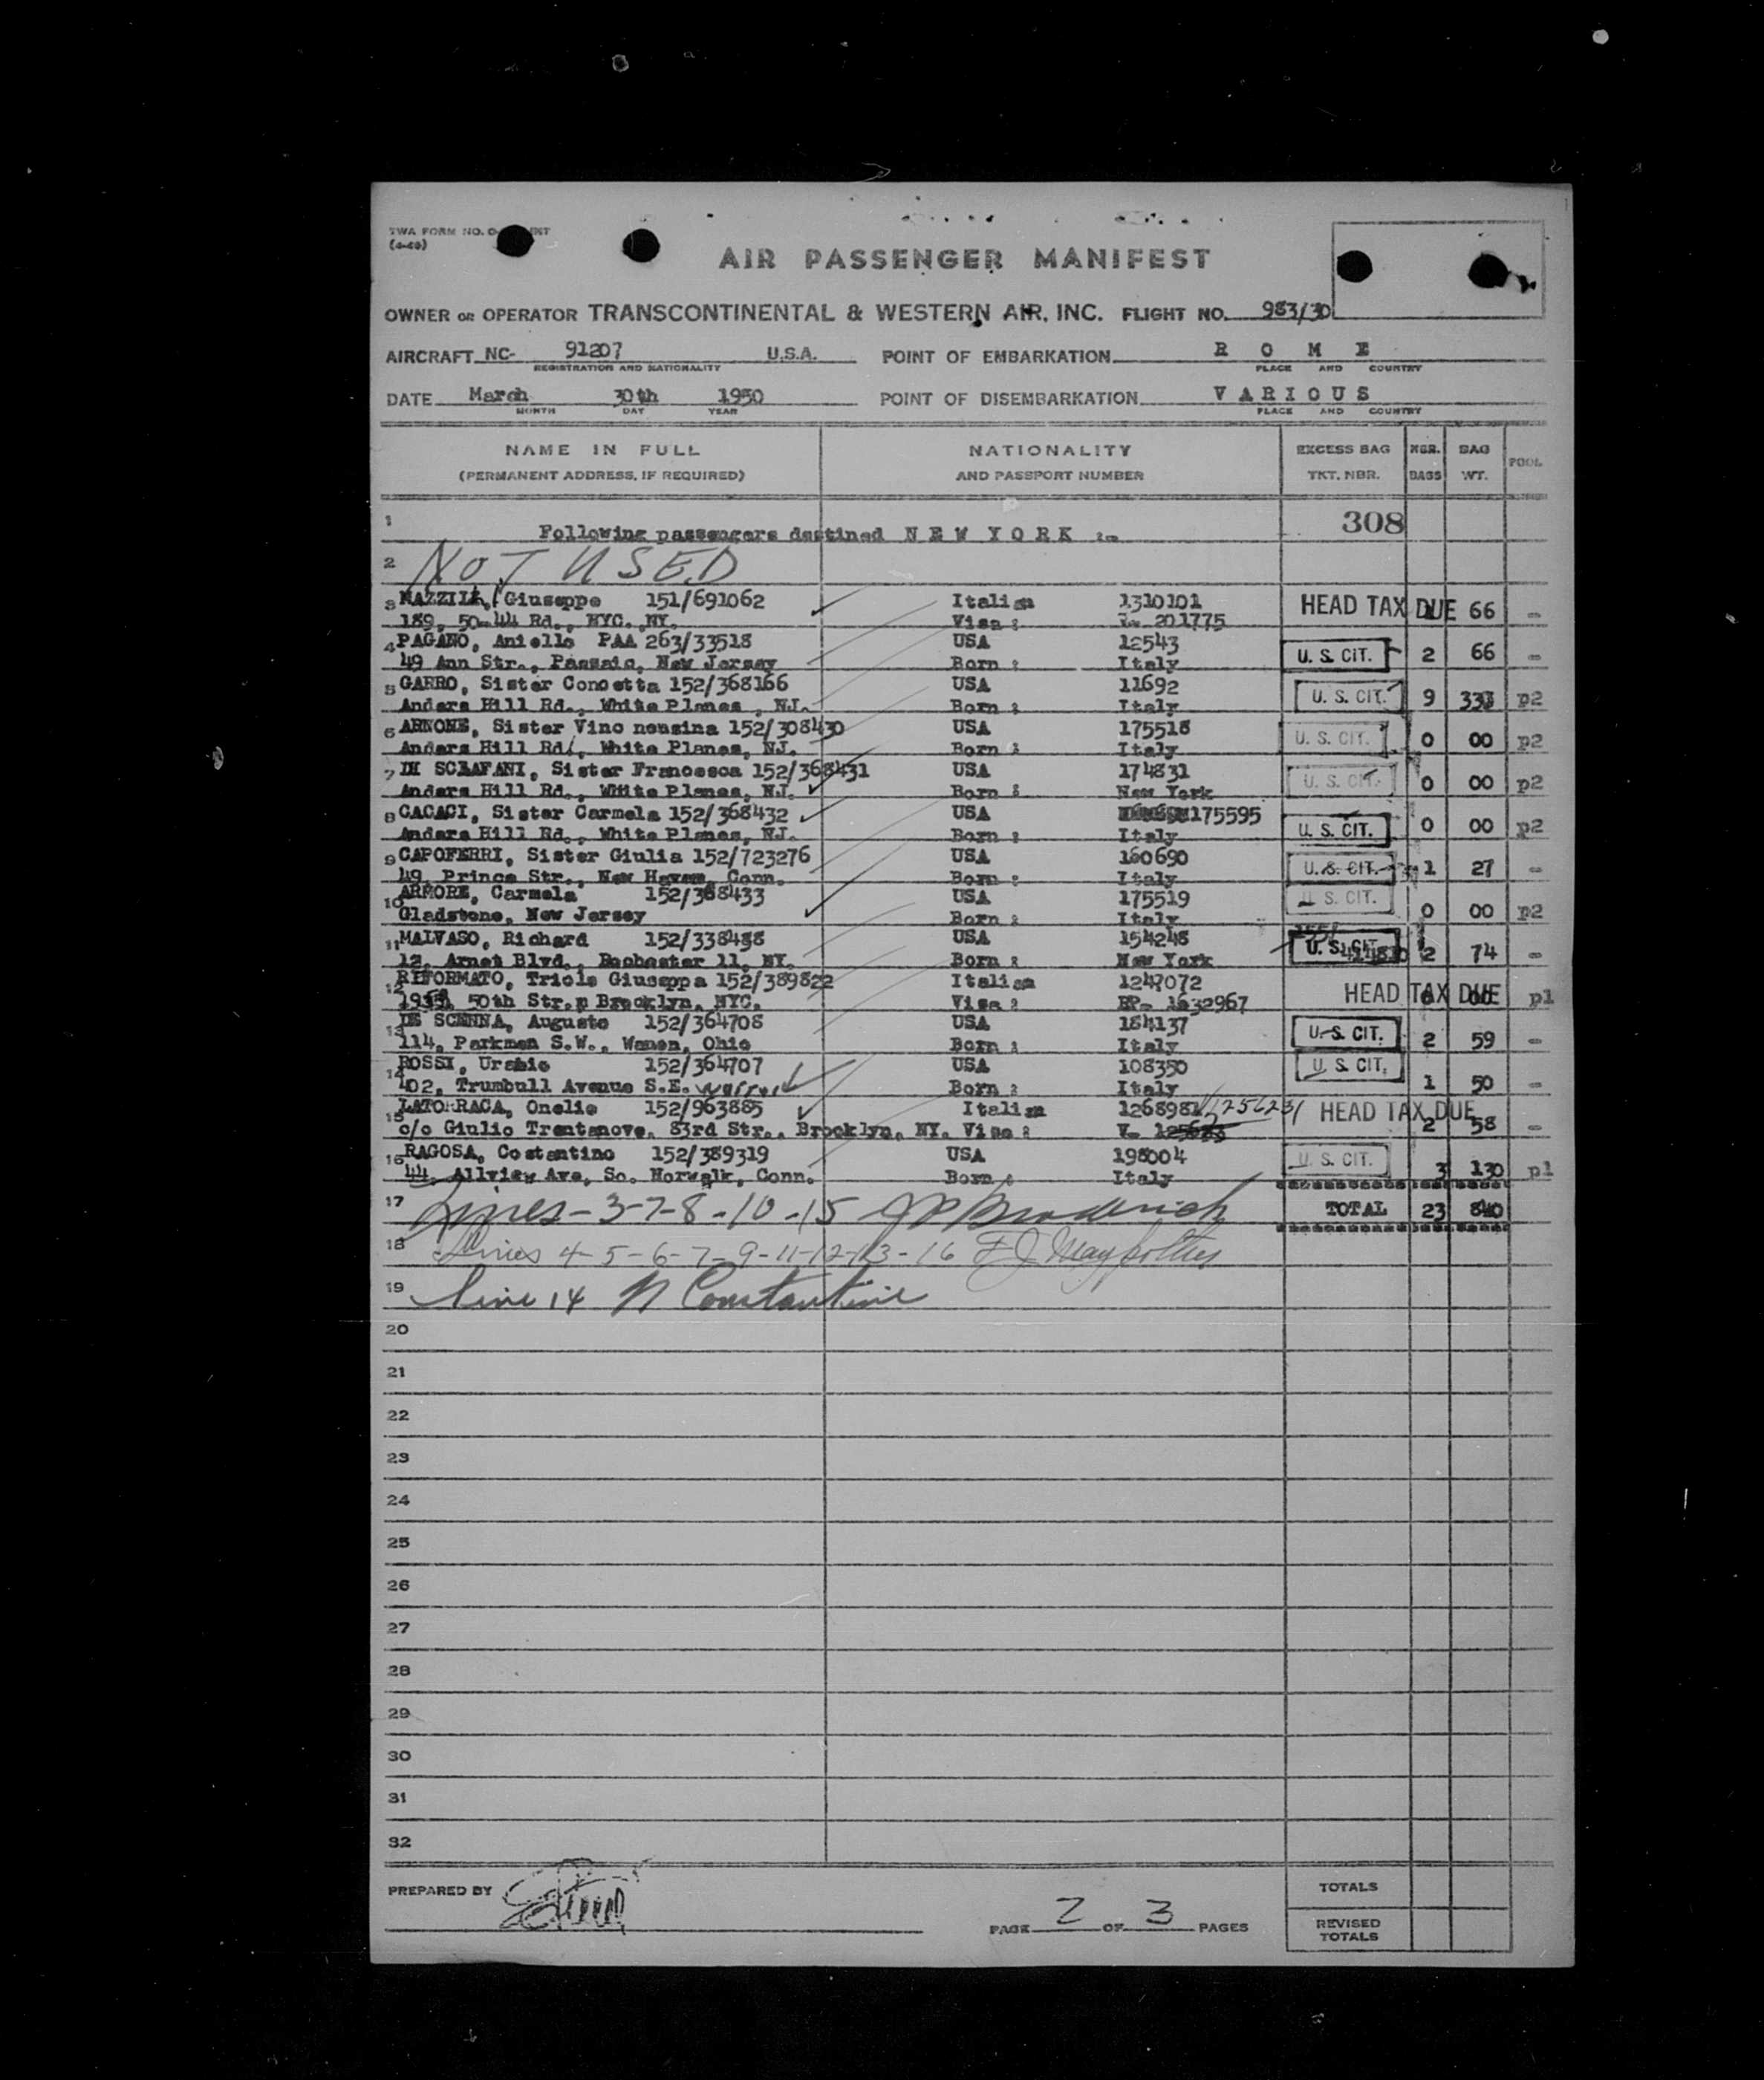 TWA FORM NO.
(4-46)
AIR PASSENGER MANIFEST
OWNER OR OPERATOR TRANSCONTINENTAL & WESTERN AIR, INC. FLIGHT NO. 983/30
AIRCRAFT NC- 91207 U.S.A. POINT OF EMBARKATION R O M E
REGISTRATION AND NATIONALITY PLACE AND COUNTRY
DATE March 30th 1950 POINT OF DISEMBARKATION V A R I O U S
MONTH DAY YEAR PLACE AND COUNTRY
NAME IN FULL NATIONALITY EXCESS BAG NBR. BAG
(PERMANENT ADDRESS, IF REQUIRED) AND PASSPORT NUMBER TKT. NBR. BAGS WT. POOL
1 Following passengers destined N E W Y O R K :- 308
2 NOT USED
3 Giuseppe 151/691062 Italian 1310101 HEAD TAX DUE 66 -
189, 50-44 Rd., NYC. NY. Visa : 201775
4 PAGANO, Aniello PAA 263/33518 USA 12543 U. S. CIT. 2 66 -
49 Ann Str., Passaic, New Jersey Born : Italy
5 GARRO, Sister Concetta 152/368166 USA 11692 U. S. CIT. 9 333 p2
Anders Hill Rd., White Planes, NJ. Born : Italy
6 ARNONE, Sister Vincnensina 152/308430 USA 175518 U. S. CIT. 0 00 p2
Anders Hill Rd., White Planes, NJ. Born : Italy
7 DI SCLAFANI, Sister Francesca 152/368431 USA 174831 U. S. CIT. 0 00 p2
Anders Hill Rd., White Planes, NJ. Born : New York
8 CACACI, Sister Carmela 152/368432 USA 175595 U. S. CIT. 0 00 p2
Anders Hill Rd., White Planes, NJ. Born : Italy
9 CAPOFERRI, Sister Giulia 152/723276 USA 160690 U. S. CIT. 1 27 -
49, Prince Str., New Haven, Conn. Born : Italy
10 Carmela 152/368433 USA 175519 U. S. CIT. 0 00 p2
Gladstone, New Jersey Born : Italy
11 MALVASO, Richard 152/338488 USA 154248 U. S. CIT. 2 74 -
12, Arnet Blvd., Rochester 11, NY. Born : New York
12 RIFORMATO, Triolo Giuseppa 152/389822 Italian 1247072 HEAD TAX DUE p1
50th Str., Brooklyn, NYC. Visa : 1632967
13 DE SCENNA, Augusto 152/364708 USA 184137 U. S. CIT. 2 59 -
114, Parkman S.W., Wanen, Ohio Born : Italy
14 ROSSI, Urasio 152/364707 USA 108350 U. S. CIT. 1 50 -
402, Trumbull Avenue S.E. Warren Born : Italy
15 LATORRACA, Onelio 152/963885 Italian 1268981 HEAD TAX DUE 2 58 -
c/o Giulio Trentanove, 83rd Str., Brooklyn, NY. Visa : V-
16 RAGOSA, Costantino 152/389319 USA 198004 U. S. CIT. 3 130 p1
44, Allview Ave, So. Norwalk, Conn. Born : Italy
17 Lines - 3-7-8-10-15 J P Brodrick TOTAL 23 840
18 Lines 4-5-6-7-9-11-12-13-16
19 Line 14 N Constantine
20
21
22
23
24
25
26
27
28
29
30
31
32
PREPARED BY TOTALS
PAGE 2 OF 3 PAGES REVISED TOTALS